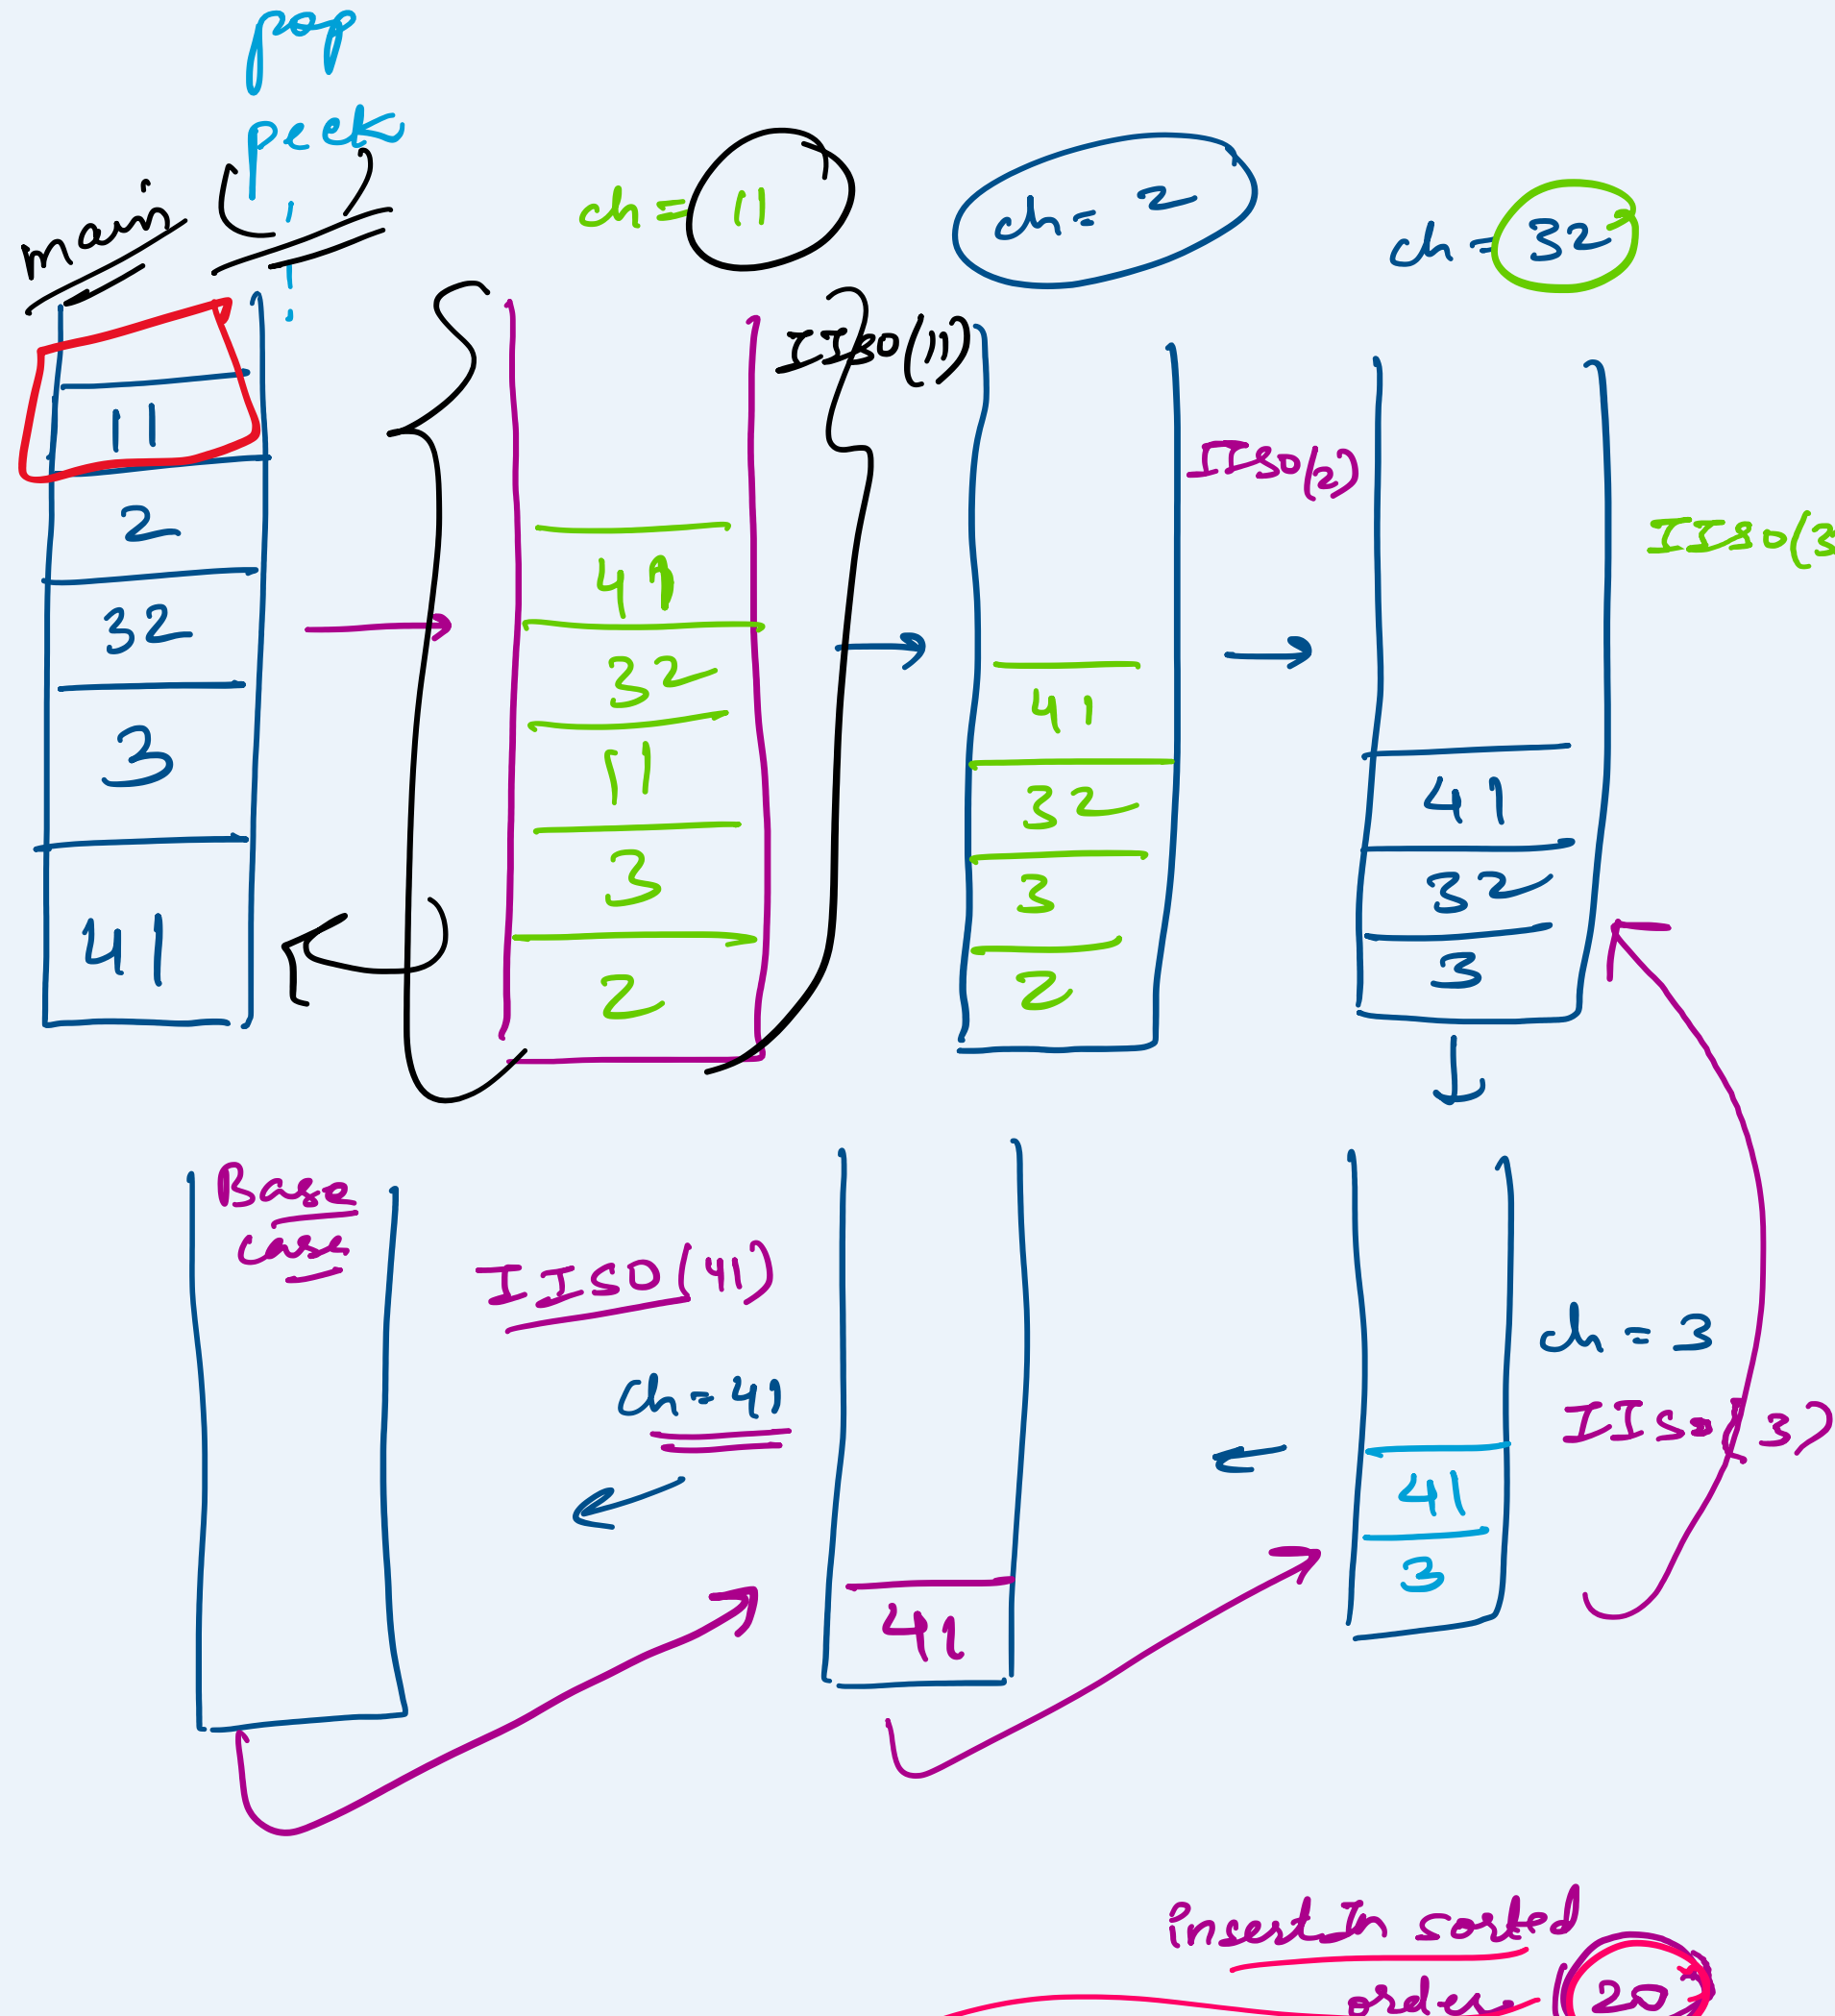 pop
peek
main
ch = 11
ch = 2
ch = 32
11
2
32
3
41
IISO(11)
41
32
11
3
2
IISO(2)
41
32
3
2
IISO(3
41
32
3
Base
case
IISO(41)
ch = 41
41
ch = 3
IISO(3)
41
3
insertIn sorted
order (20